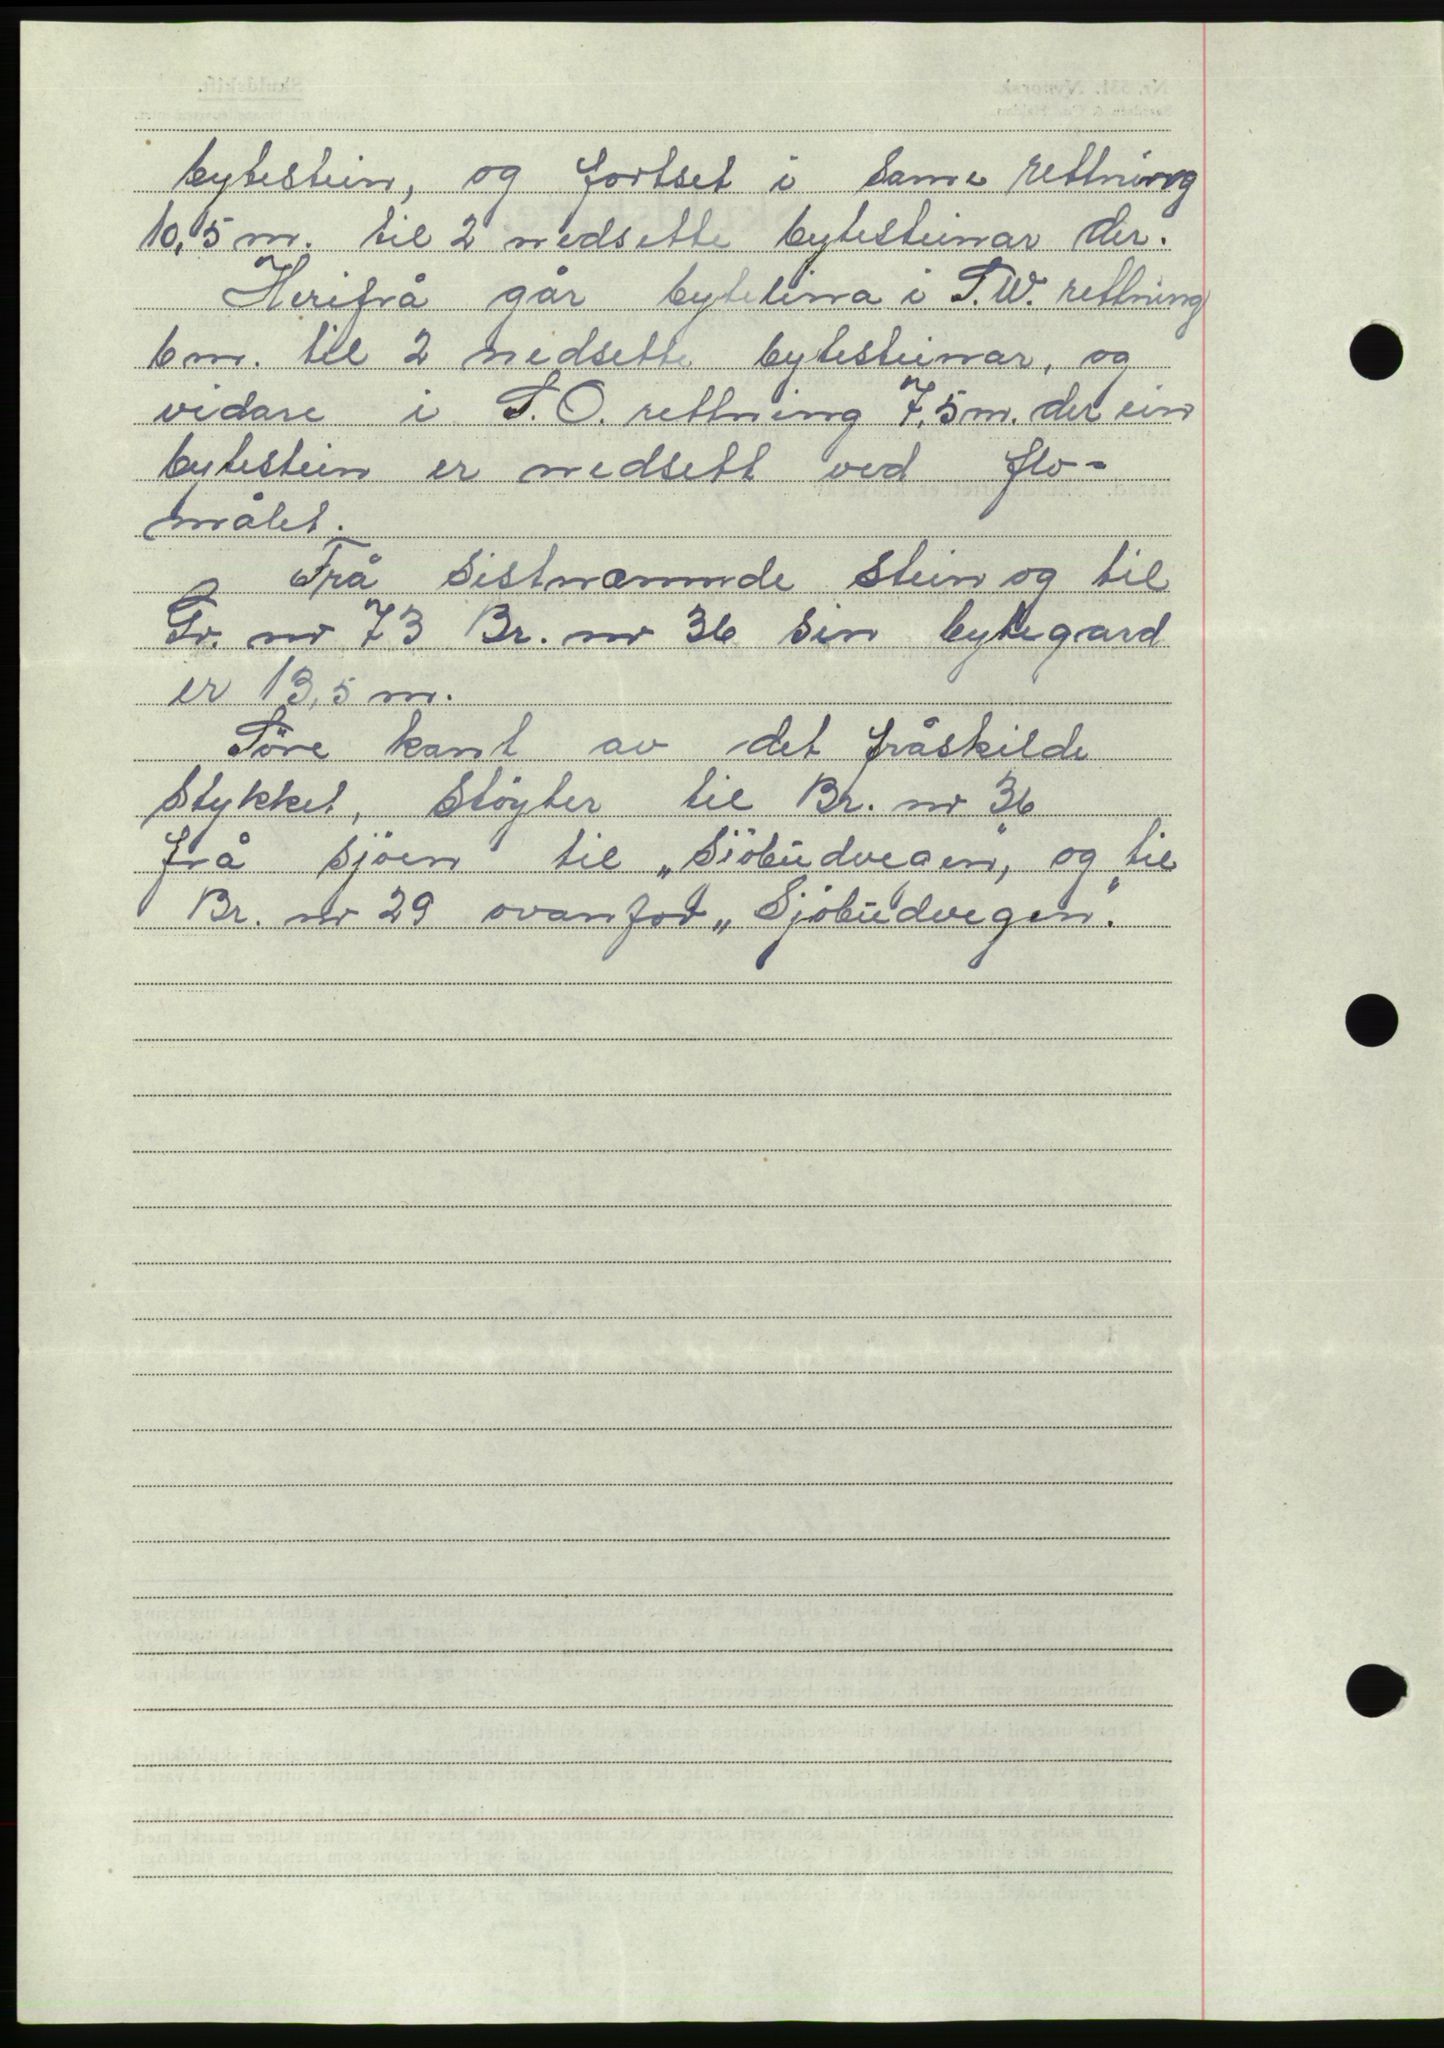 bytestein, og fortset i same rettning
10,5 m. til 2 nedsette bytesteinar der.
Herifrå går bytelina i S.W. rettning
6 m. til 2 nedsette bytesteinar, og
vidare i S.O. rettning 7,5 m. der ein
bytestein er nedsett ved flo-
målet.
Frå sistnemnde stein og til
Gr. nr 73 Br. nr 36 sin bytegard
er 13,5 m.
Søre kant av det fråskilde
stykket, støyter til Br. nr 36
frå sjöen til „Sjöbudvegen", og til
Br. nr 29 ovanfor „Sjöbudvegen".